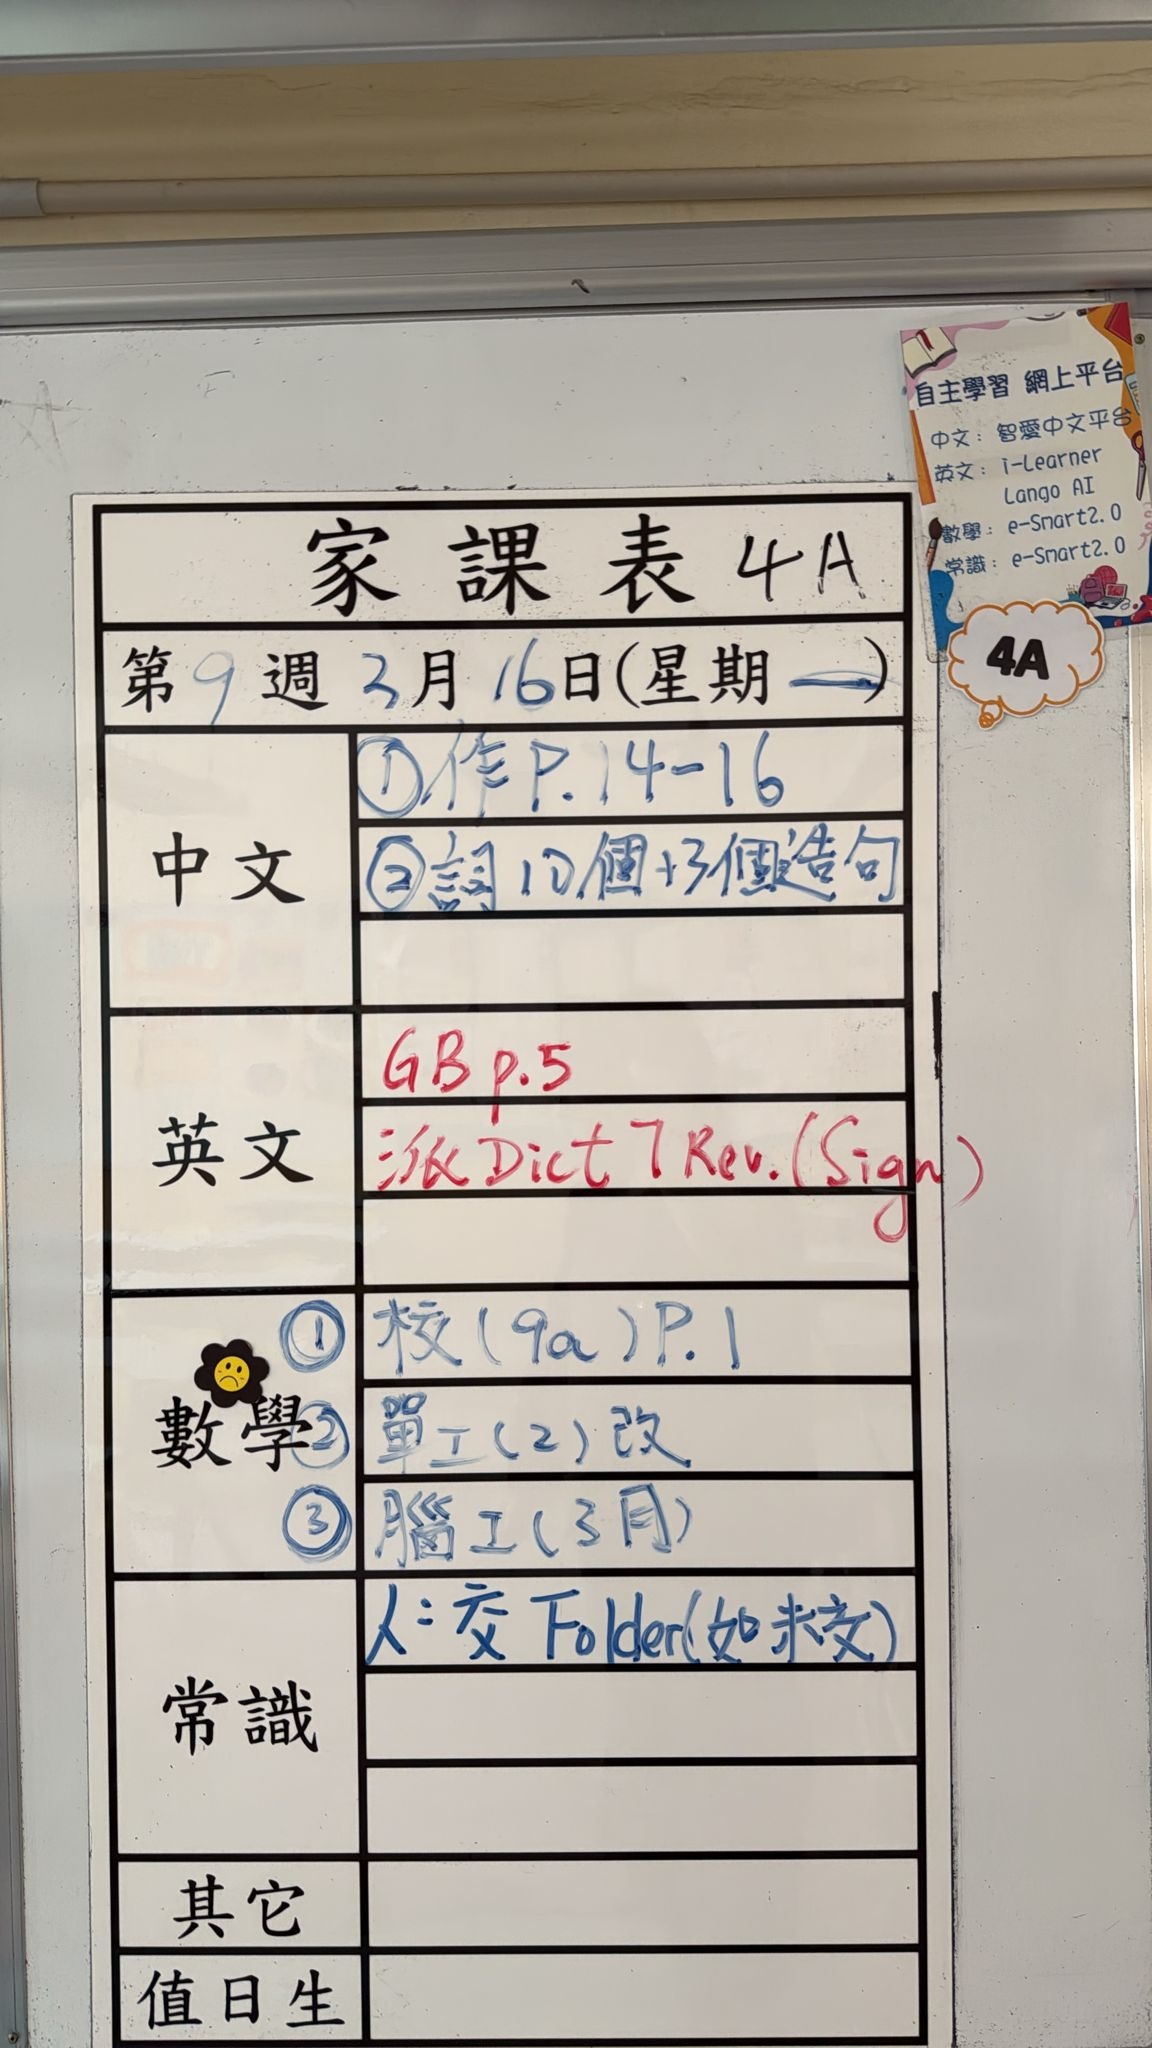 自主學習 網上平台
中文：智愛中文平台
英文：i-Learner
Lango AI
數學：e-Smart2.0
常識：e-Smart2.0
4A
家課表 4A
第9週 3月16日(星期一)
中文
①作P.14-16
②詞10個+3個造句
英文
GB p.5
派Dict 7 Rev.(Sign)
數學
① 校(9a)P.1
② 單工(2)改
③ 腦工(3月)
常識
人:交Folder(如未交)
其它
值日生